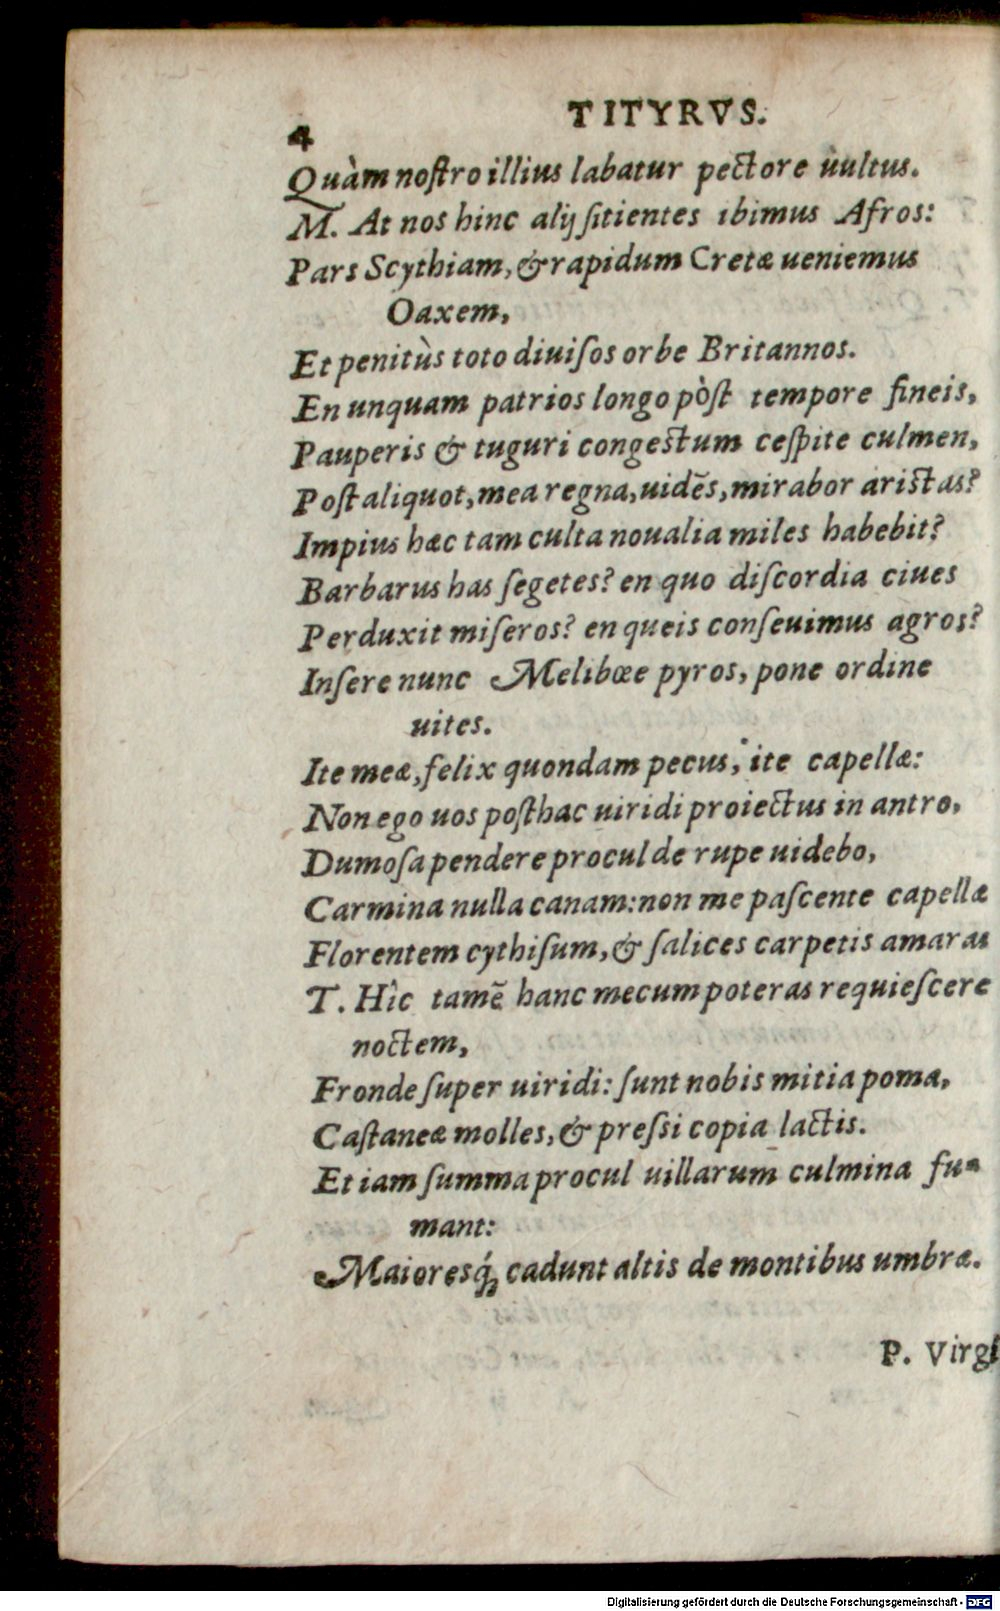 TITYRVS.
4
Quàm noſtro illius labatur pectore uultus.
M. At nos hinc alij ſitientes ibimus Afros:
Pars Scythiam, & rapidum Cretæ ueniemus
Oaxem,
Et penitùs toto diuiſos orbe Britannos.
En unquam patrios longo pòſt tempore fineis,
Pauperis & tuguri congeſtum ceſpite culmen,
Poſt aliquot, mea regna, uidẽs, mirabor ariſtas?
Impius hæc tam culta noualia miles habebit?
Barbarus has ſegetes? en quo diſcordia ciues
Perduxit miſeros? en queis conſeuimus agros?
Inſere nunc Melibœe pyros, pone ordine
uites.
Ite meæ, felix quondam pecus, ite capellæ:
Non ego uos poſthac uiridi proiectus in antro,
Dumoſa pendere procul de rupe uidebo,
Carmina nulla canam: non me paſcente capellæ
Florentem cythiſum, & ſalices carpetis amaras
T. Hîc tamẽ hanc mecum poteras requieſcere
noctem,
Fronde ſuper uiridi: ſunt nobis mitia poma,
Caſtaneæ molles, & preſsi copia lactis.
Et iam ſumma procul uillarum culmina fu-
mant:
Maioresq́; cadunt altis de montibus umbræ.
P. Virg
Digitalisierung gefördert durch die Deutsche Forschungsgemeinschaft - DFG